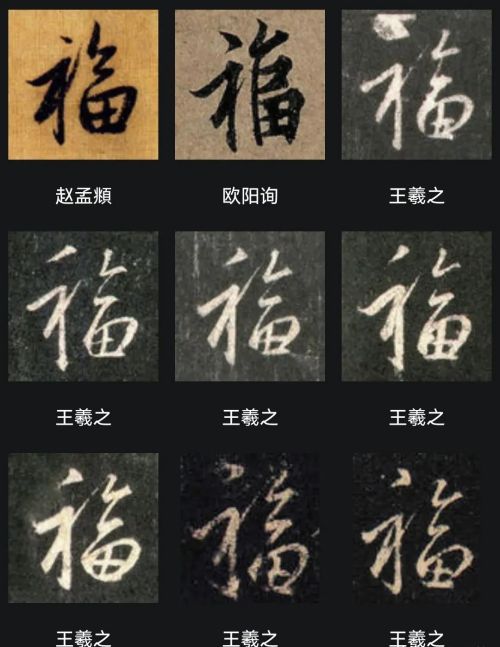 福 福 福
赵孟頫 欧阳询 王羲之
福 福 福
王羲之 王羲之 王羲之
福 福 福
王羲之 王羲之 王羲之